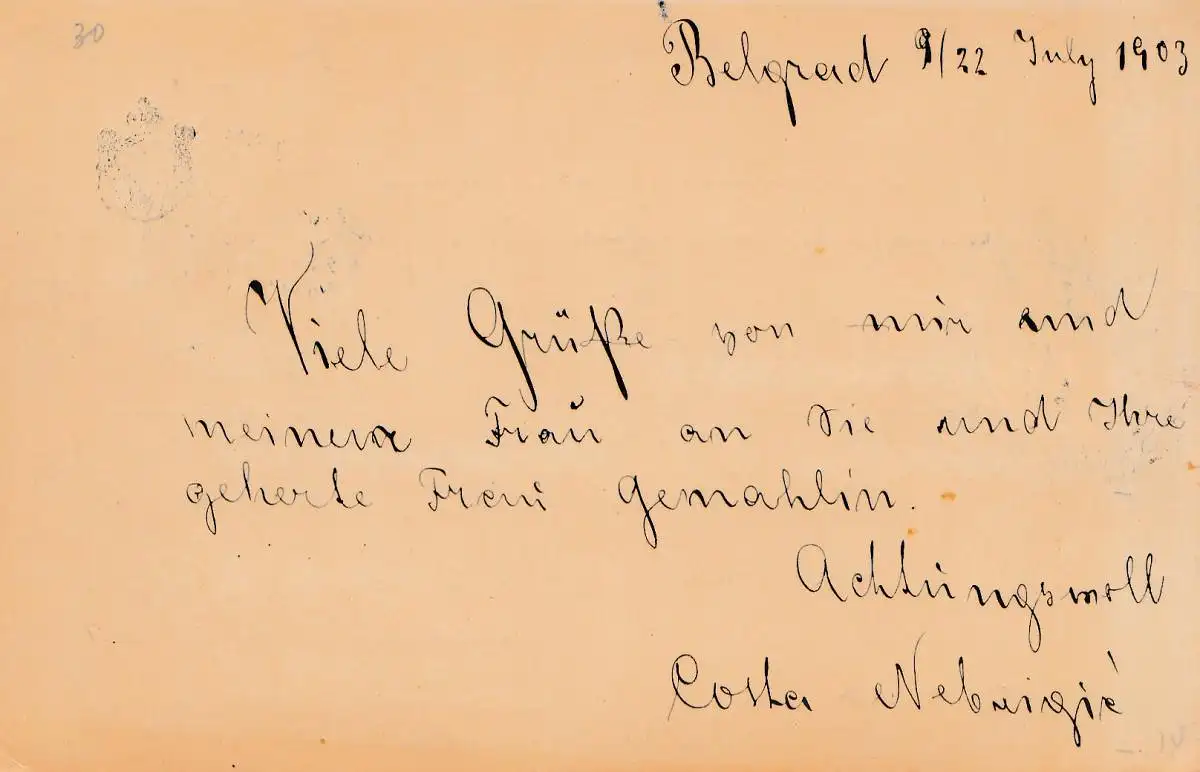 30
Belgrad 9/22 July 1903
Viele Grüße von mir und
meiner Frau an Sie und Ihre
geherte Frau Gemahlin.
Achtungsvoll
Costa